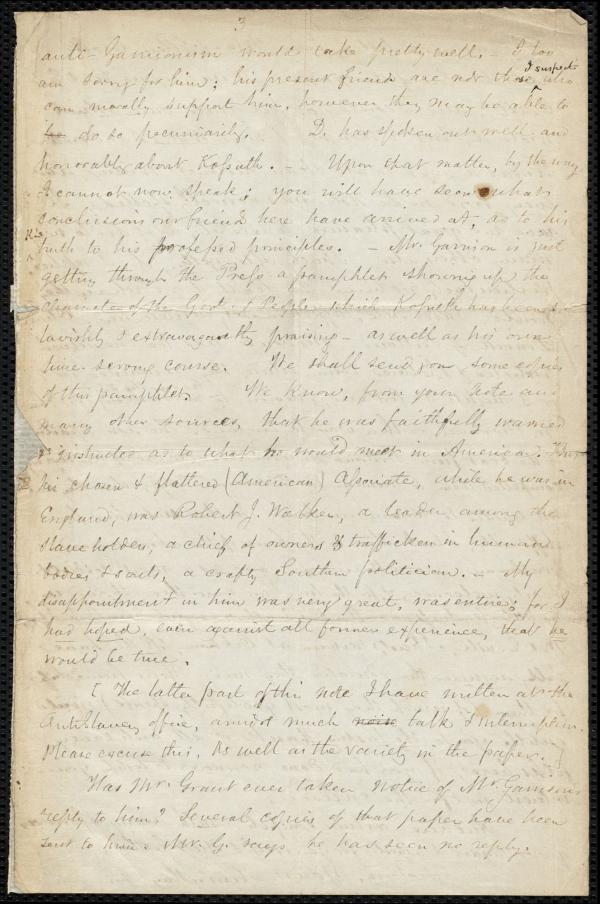 3
anti-Garrisonism would take pretty well. – I too
am sorry for him; his present friends are not those, I suspect, who
can morally support him, however they may be able to
be do so pecuniarily. D. has spoken out well and
honorably about Kossuth. – Upon that matter, by the way
I cannot now speak; you will have seen what
conclusions our friends here have arrived at, as to his
truth to his professed principles. – Mr. Garrison is just
getting through the Press a pamphlet showing up the
character of the Govt. & People which Kossuth has been so
lavishly & extravagantly praising – as well as his own
time-serving course. We shall send you some copies
of this pamphlet. We know, from your note and
many other sources, that he was faithfully warned
& instructed as to what he would meet in America. But
his chosen & flattered (American) Associate, while he was in
England, was Robert J. Walker, a leader among the
slaveholders, a chief of owners & traffickers in human
bodies & souls, a crafty Southern politician. – My
disappointment in him was very great, was entire; for I
had hoped, even against all former experience, that he
would be true.
[ The latter part of this note I have written at the
AntiSlavery office, amidst much noise talk & interruption.
Please excuse this, as well as the variety in the paper. ]
Has Mr. Grant ever taken notice of Mr. Garrison's
reply to him? Several copies of that paper have been
sent to him. Mr. G. says he has seen no reply.